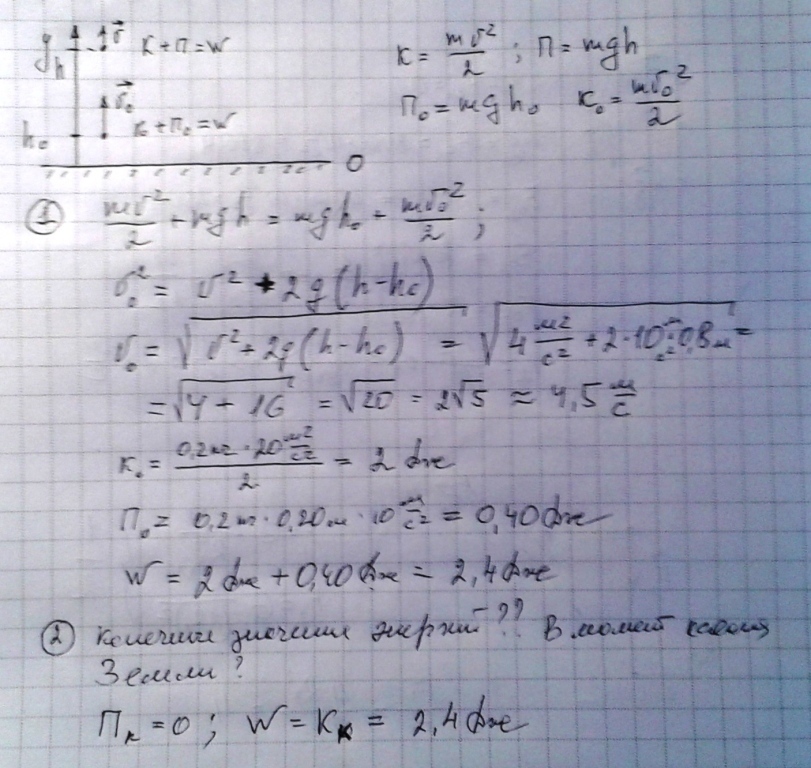 g h v⃗ K + П = W
K = mv²/2 ; П = mgh
v⃗₀ K + П₀ = W
П₀ = mgh₀ K₀ = mv₀²/2
h₀
0
① mv²/2 + mgh = mgh₀ + mv₀²/2 ;
v₀² = v² + 2g(h-h₀)
v₀ = √(v² + 2g(h-h₀)) = √(4 м²/с² + 2·10 м/с²·0,8м) =
= √(4 + 16) = √20 = 2√5 ≈ 4,5 м/с
K₀ = (0,2кг · 20 м²/с²)/2 = 2 Дж
П₀ = 0,2кг · 0,20м · 10 м/с² = 0,40 Дж
W = 2 Дж + 0,40 Дж = 2,4 Дж
② Конечные значения энергий ?? В момент касания
Земли ?
Пк = 0 ; W = Kк = 2,4 Дж